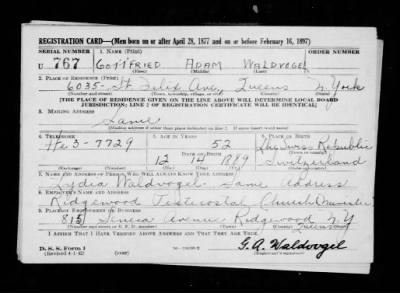 REGISTRATION CARD—(Men born on or after April 28, 1877 and on or before February 16, 1897)
SERIAL NUMBER 1. NAME (Print) ORDER NUMBER
U 767 GOTTFRIED ADAM WALDVOGEL
(First) (Middle) (Last)
2. PLACE OF RESIDENCE (Print)
6035- St. Felix Ave, Queens N. York
(Number and street) (Town, township, village, or city) (County) (State)
[THE PLACE OF RESIDENCE GIVEN ON THE LINE ABOVE WILL DETERMINE LOCAL BOARD
JURISDICTION; LINE 2 OF REGISTRATION CERTIFICATE WILL BE IDENTICAL]
3. MAILING ADDRESS
Same
[Mailing address if other than place indicated on line 2. If same insert word same]
4. TELEPHONE 5. AGE IN YEARS 6. PLACE OF BIRTH
He 3-7729 52 Swiss Republic
DATE OF BIRTH
12 14 1889 Switzerland
(Mo.) (Day) (Yr.)
7. NAME AND ADDRESS OF PERSON WHO WILL ALWAYS KNOW YOUR ADDRESS
Lydia Waldvogel Same Address
8. EMPLOYER'S NAME AND ADDRESS
Ridgewood Pentecostal Church (Minister)
9. PLACE OF EMPLOYMENT OR BUSINESS
815 Seneca Avenue Ridgewood N.Y
(Number and street or R. F. D. number) (Town) (County) (State)
I AFFIRM THAT I HAVE VERIFIED ABOVE ANSWERS AND THAT THEY ARE TRUE.
D. S. S. Form 1
(Revised 4-1-42)
G. A. Waldvogel